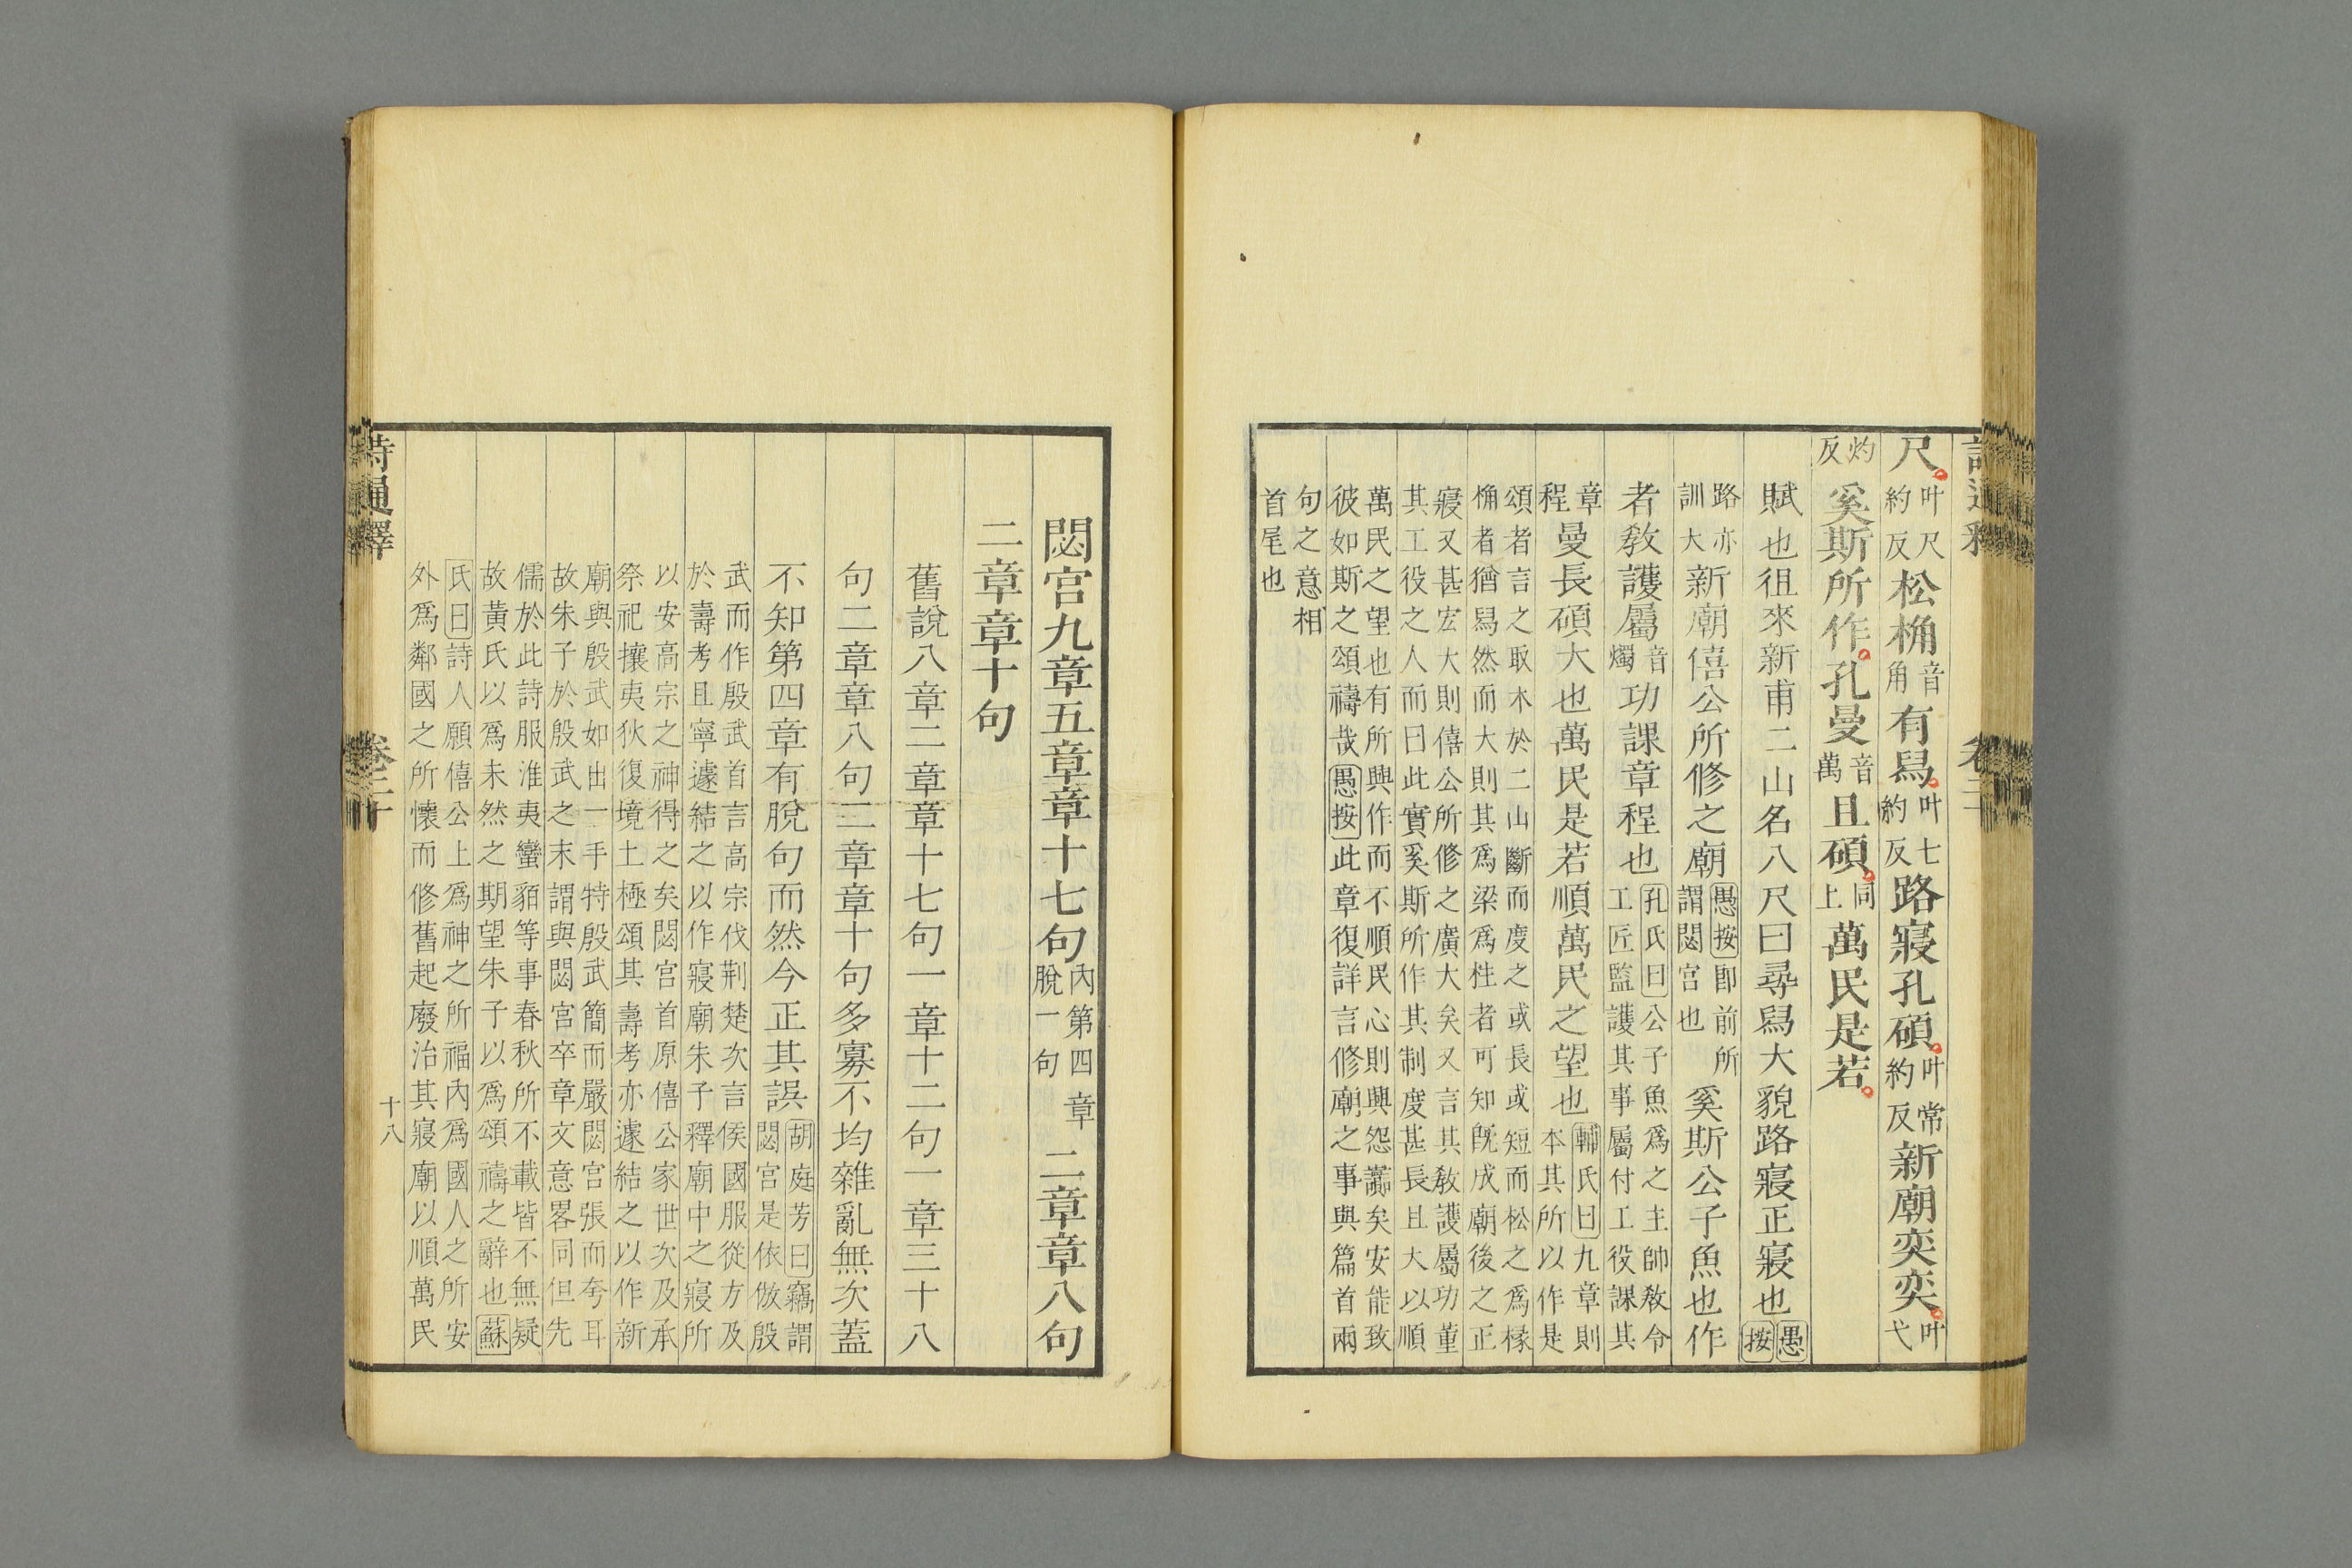 詩通釋
卷二十
尺叶尺約反松桷音角有舄叶七約反路寢孔碩叶常約反新廟奕奕叶弋
灼反奚斯所作孔曼音萬且碩同上萬民是若
賦也徂來新甫二山名八尺曰尋舄大貌路寢正寢也愚按
路亦訓大新廟僖公所修之廟愚按卽前所謂閟宮也奚斯公子魚也作
者敎護屬音燭功課章程也孔氏曰公子魚爲之主帥敎令工匠監護其事屬付工役課其
章程曼長碩大也萬民是若順萬民之望也輔氏曰九章則本其所以作是
頌者言之取木於二山斷而度之或長或短而松之爲椽
桷者猶舄然而大則其爲梁爲柱者可知旣成廟後之正
寢又甚宏大則僖公所修之廣大矣又言其敎護屬功董
其工役之人而曰此實奚斯所作其制度甚長且大以順
萬民之望也有所興作而不順民心則興怨讟矣安能致
彼如斯之頌禱哉愚按此章復詳言修廟之事與篇首兩
句之意相
首尾也
閟宮九章五章章十七句內第四章脫一句二章章八句
二章章十句
舊說八章二章章十七句一章十二句一章三十八
句二章章八句二章章十句多寡不均雜亂無次蓋
不知第四章有脫句而然今正其誤胡庭芳曰竊謂閟宮是依倣殷
武而作殷武首言高宗伐荆楚次言侯國服從方及
於壽考且寧遽結之以作寢廟朱子釋廟中之寢所
以安高宗之神得之矣閟宮首原僖公家世次及承
祭祀攘夷狄復境土極頌其壽考亦遽結之以作新
廟與殷武如出一手特殷武簡而嚴閟宮張而夸耳
故朱子於殷武之末謂與閟宮卒章文意畧同但先
儒於此詩服淮夷蠻貊等事春秋所不載皆不無疑
故黃氏以爲未然之期望朱子以爲頌禱之辭也蘇
氏曰詩人願僖公上爲神之所福內爲國人之所安
外爲鄰國之所懷而修舊起廢治其寢廟以順萬民
詩通釋
卷二十
十八